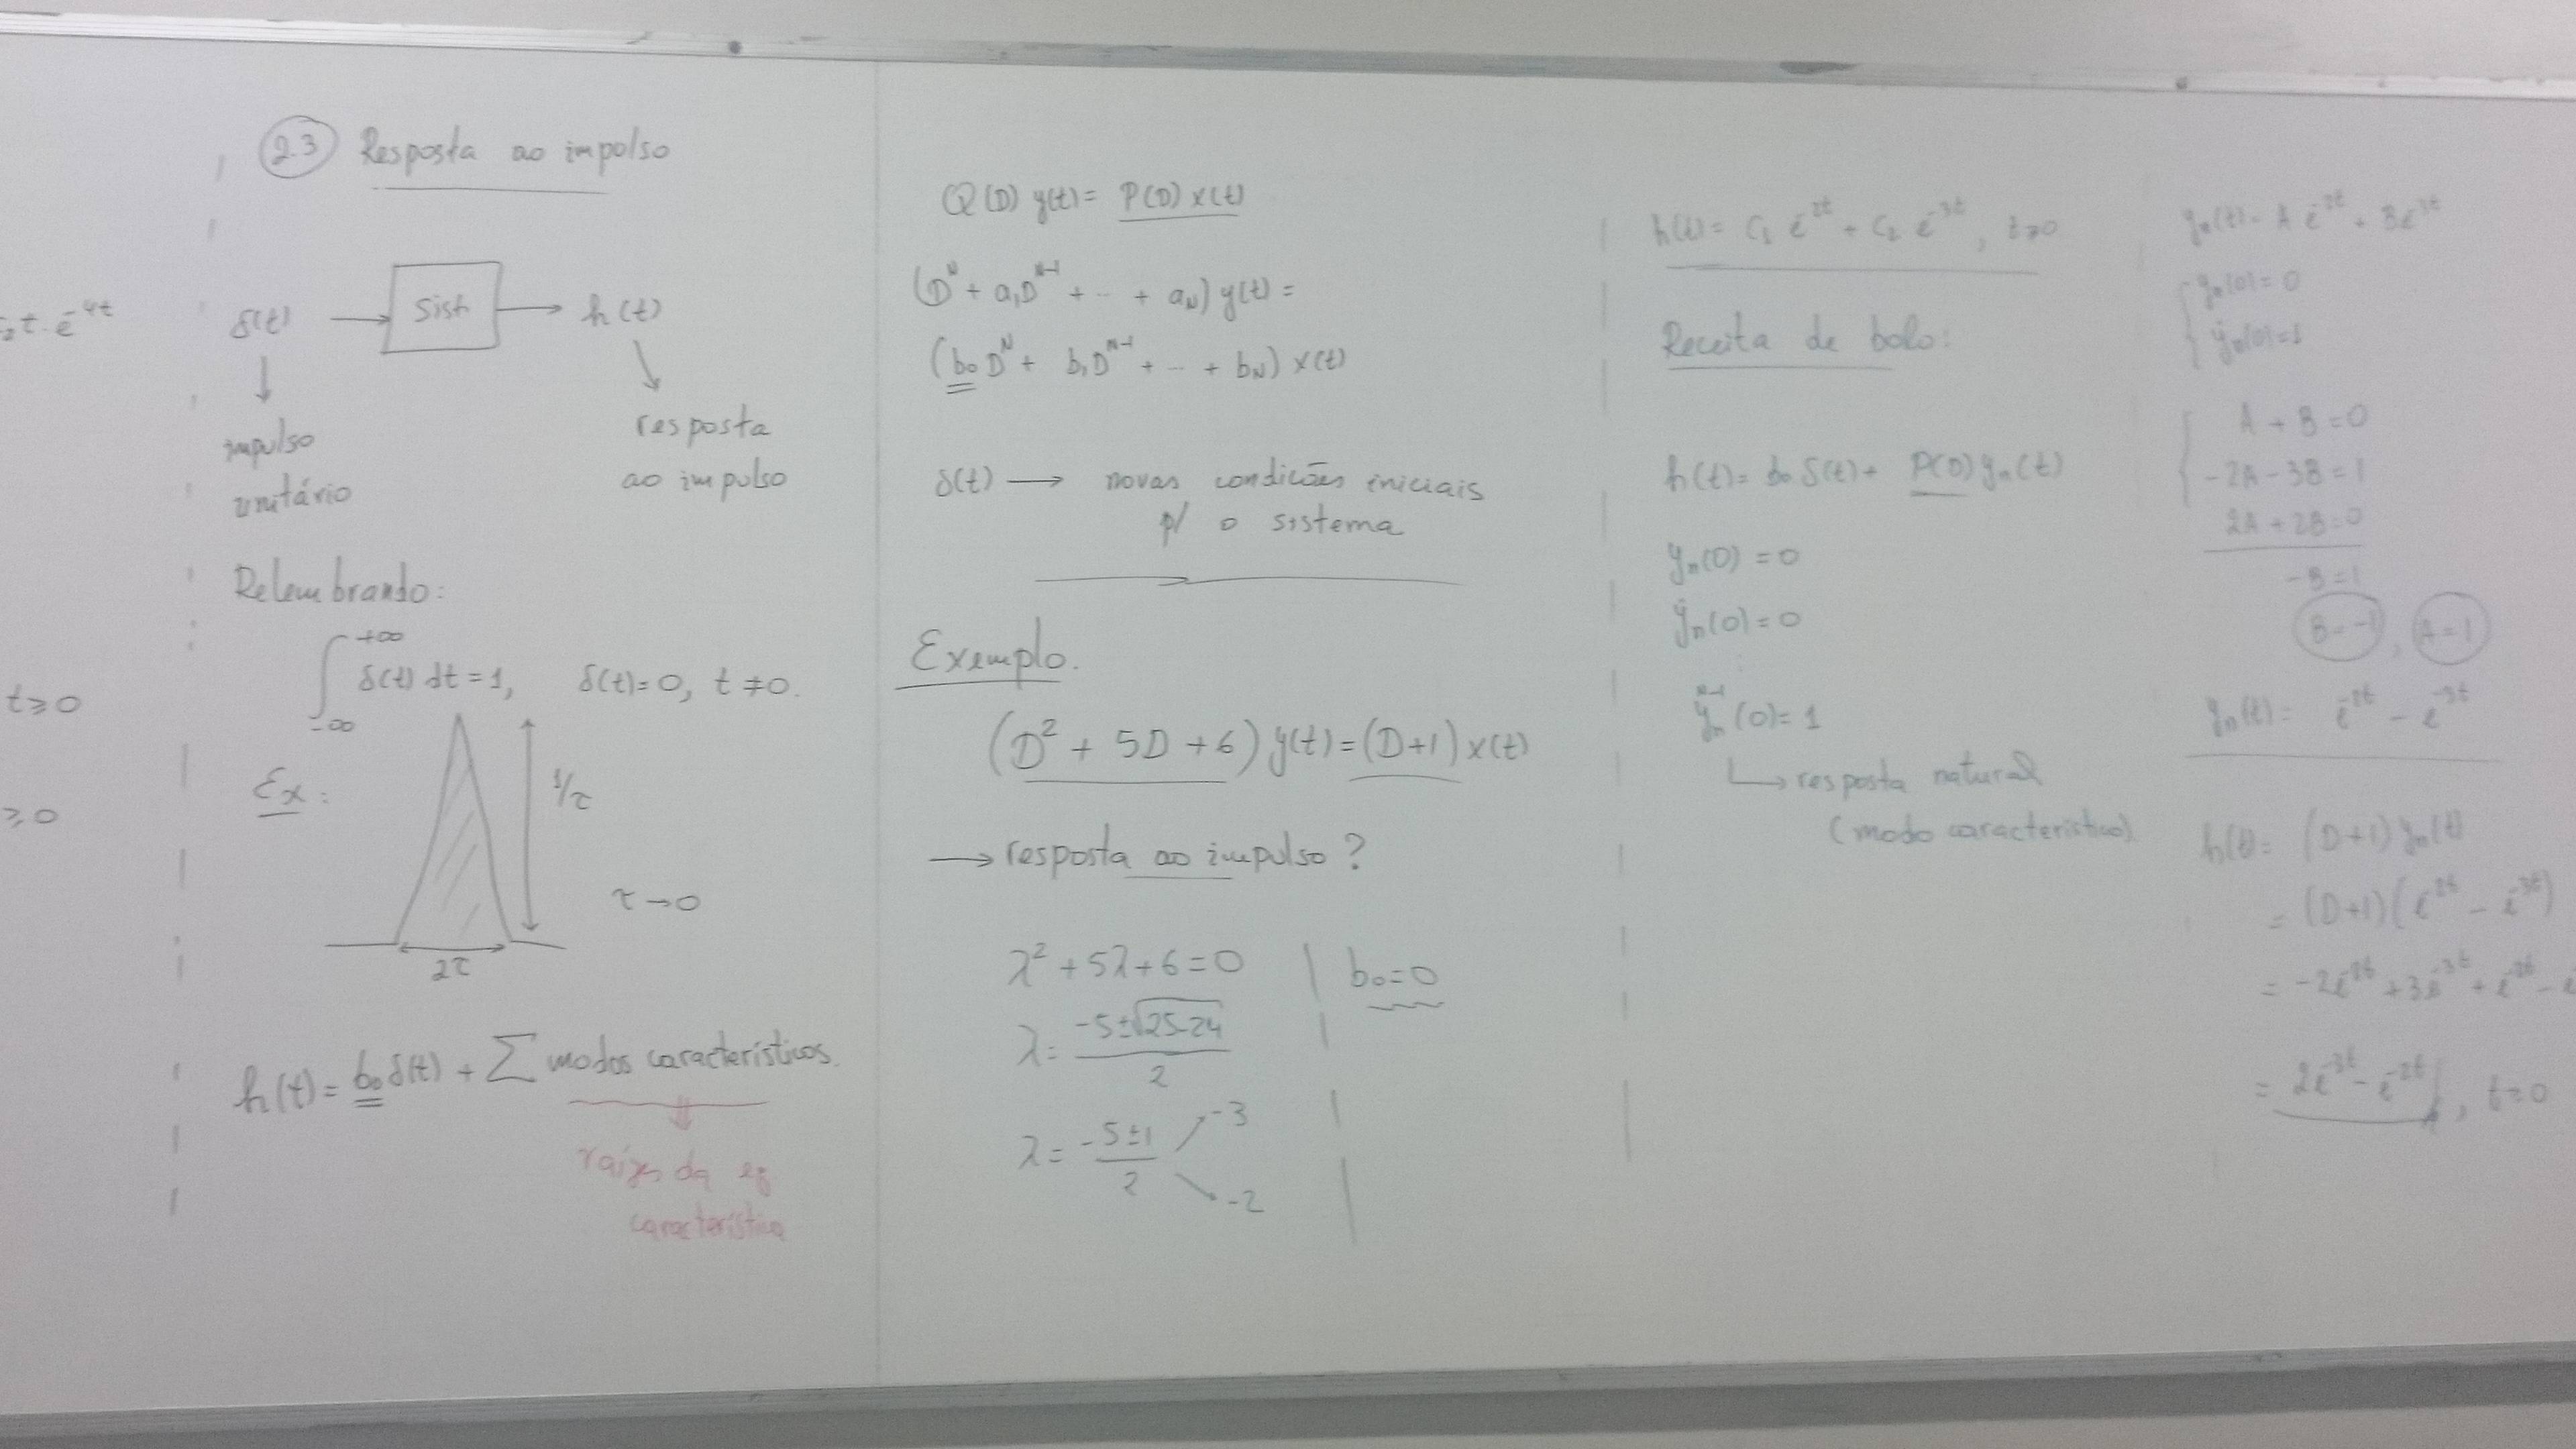 ₂t·e^-4t
t≥0
≥0
2.3 Resposta ao impulso
δ(t) → Sist → h(t)
impulso
unitário
resposta
ao impulso
Relembrando:
∫_-∞^+∞ δ(t) dt = 1, δ(t)=0, t≠0.
Ex:
1/τ
τ→0
2τ
h(t) = b₀δ(t) + Σ modos característicos.
raízes da eq
característica
Q(D) y(t) = P(D) x(t)
(D^N + a₁D^N-1 + ... + a_N) y(t) =
(b₀D^N + b₁D^N-1 + ... + b_N) x(t)
δ(t) → novas condições iniciais
p/ o sistema
Exemplo.
(D² + 5D + 6) y(t) = (D+1) x(t)
→ resposta ao impulso?
λ² + 5λ + 6 = 0
b₀=0
λ = (-5±√25-24)/2
λ = (-5±1)/2
-3
-2
h(t) = C₁ e^-2t + C₂ e^-3t, t≥0
Receita de bolo:
h(t) = b₀ δ(t) + P(D) y_n(t)
y_n(0) = 0
ẏ_n(0) = 0
:
y_n^N-1(0) = 1
↳ resposta natural
(modo característico)
y_n(t) = A e^-2t + B e^-3t
{ y_n(0) = 0
ẏ_n(0) = 1
{ A + B = 0
-2A - 3B = 1
2A + 2B = 0
-B = 1
B = -1, A = 1
y_n(t) = e^-2t - e^-3t
h(t) = (D+1) y_n(t)
= (D+1)(e^-2t - e^-3t)
= -2e^-2t + 3e^-3t + e^-2t -
= 2e^-3t - e^-2t, t≥0